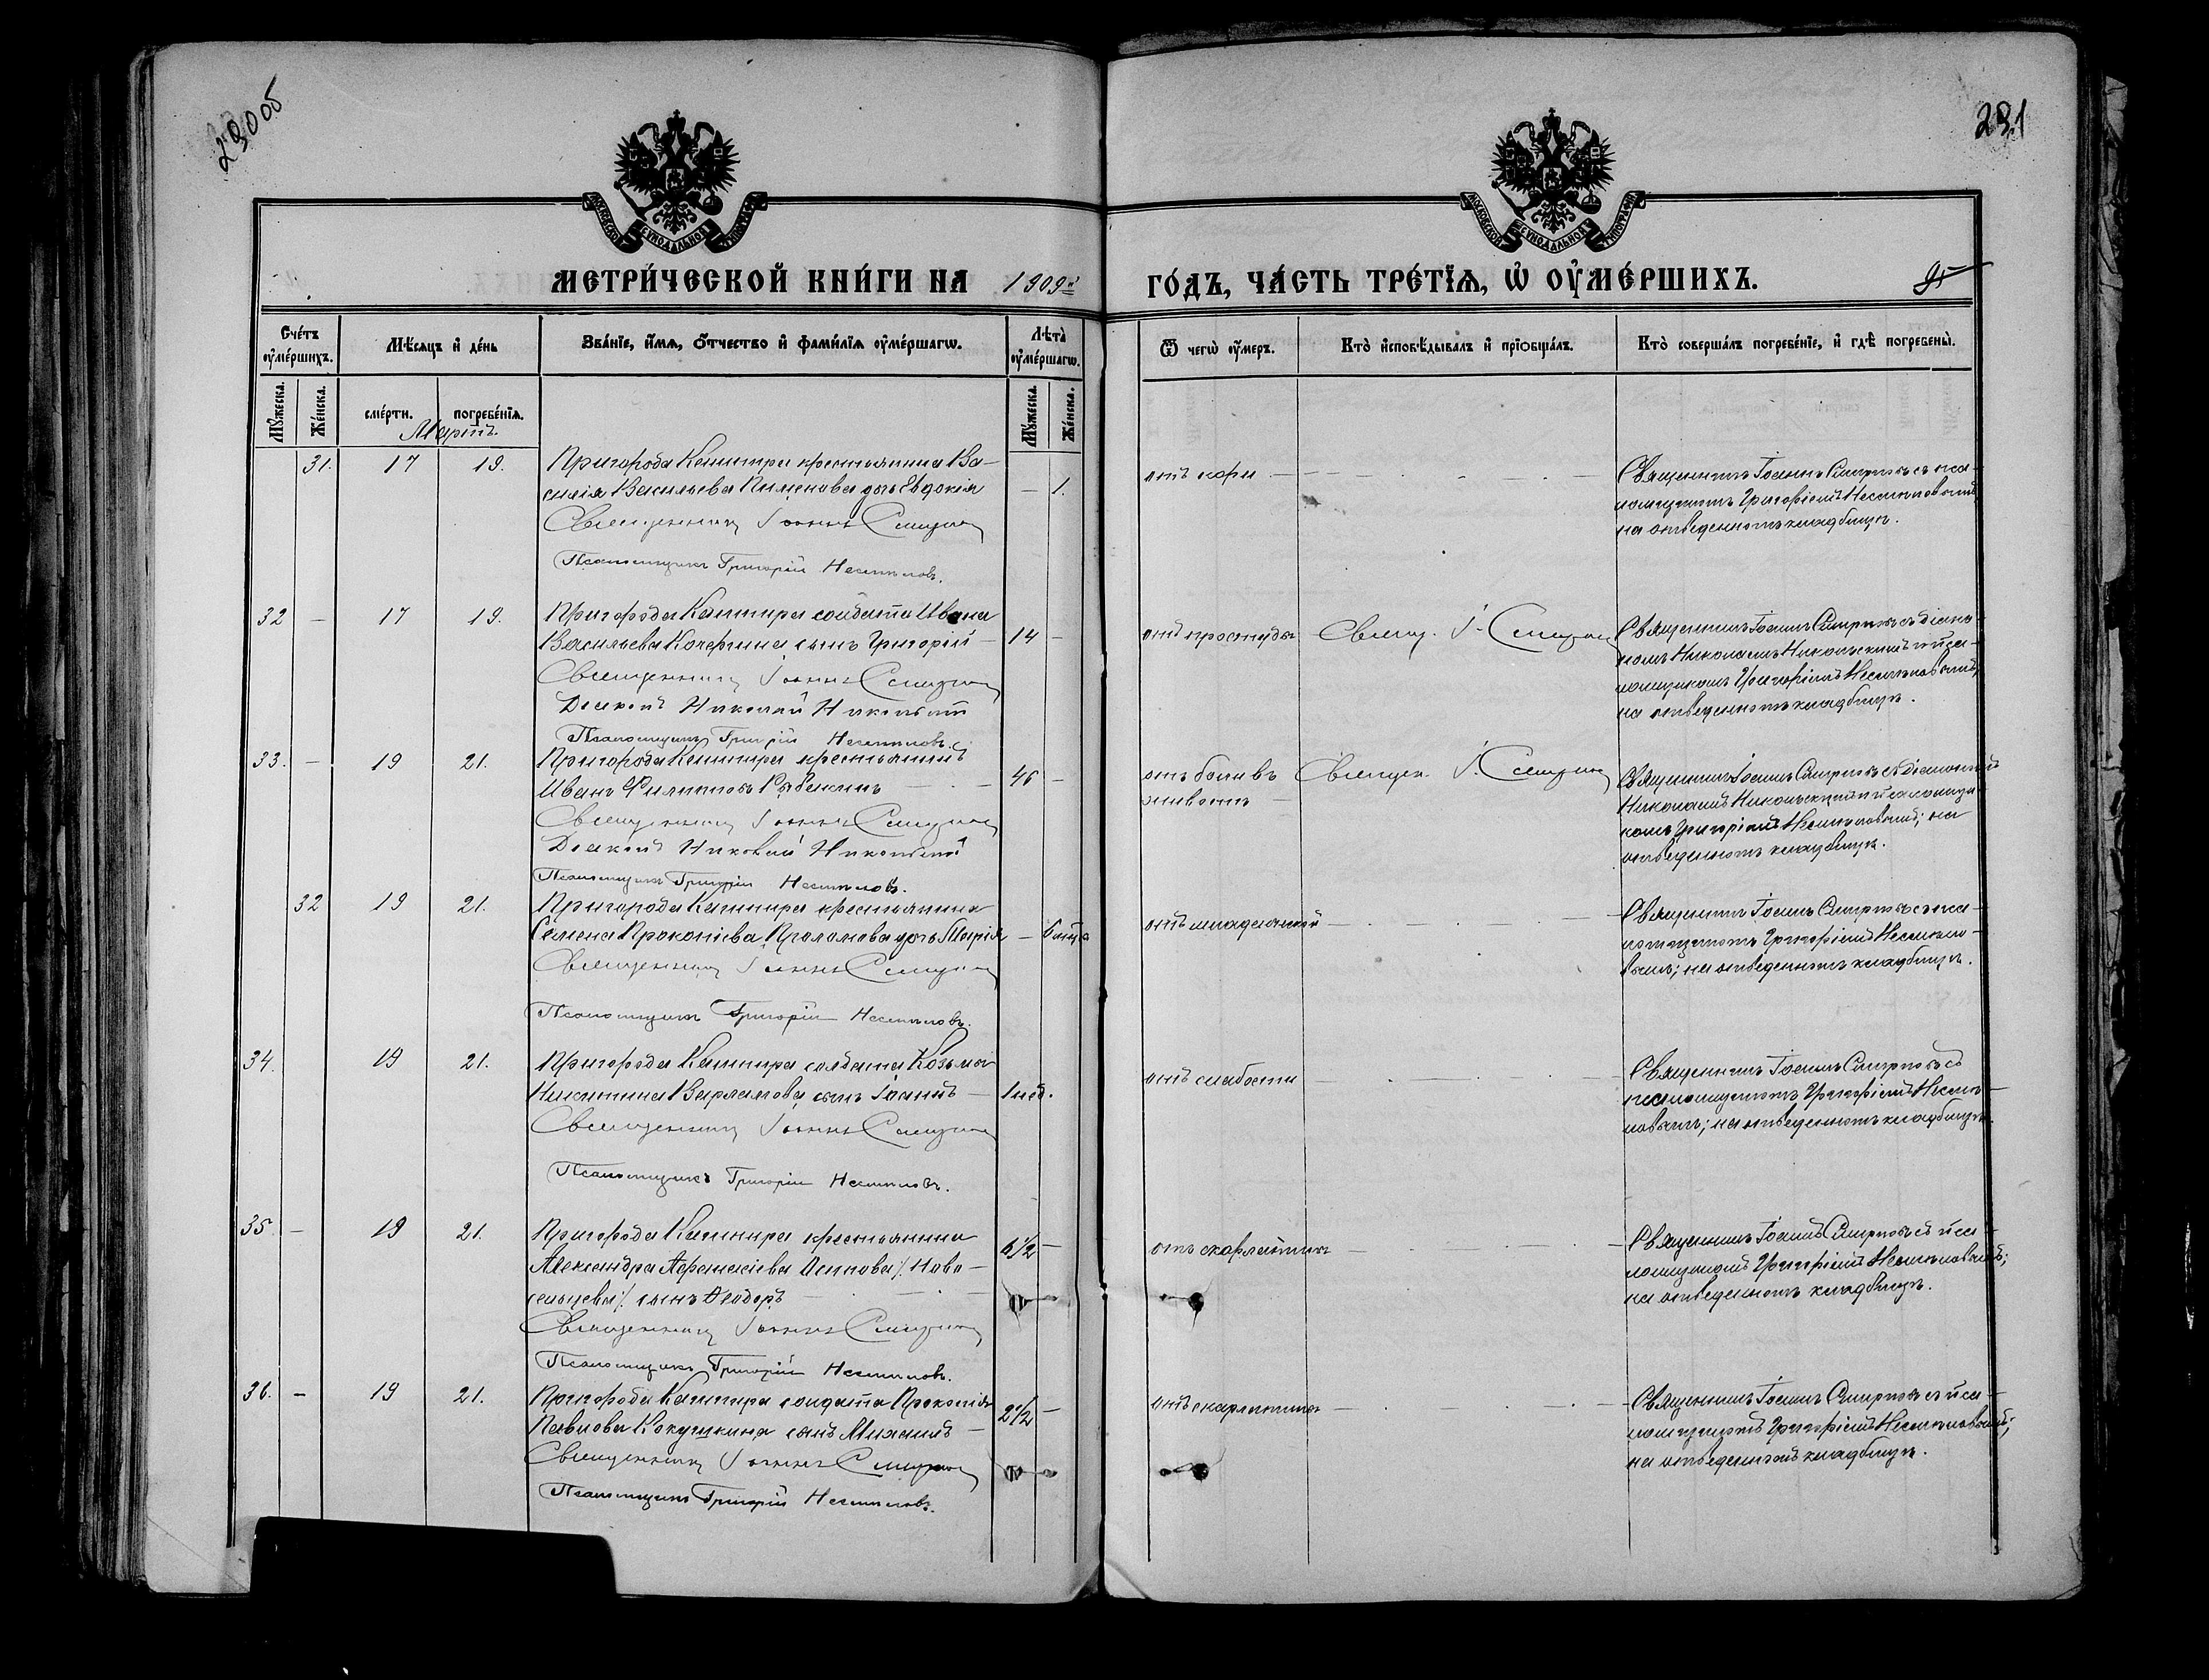 230об
231
МЕТРИ́ЧЕСКОЙ КНИ́ГИ НА 1909й
ГО́ДЪ, ЧА́СТЬ ТРЕ́ТЇѦ, Ѡ҆ ОУ҆МЕ́РШИХЪ.
Сче́тъ оу҆ме́ршихъ.
Мѣ́сяцъ и҆ де́нь
Зва́нїе, и҆́мѧ, ѻ҆́тчество и҆ фами́лїѧ оу҆ме́ршагѡ.
Лѣ́та оу҆ме́ршагѡ.
Ѿ чегѡ̀ оу҆́меръ.
Кто̀ и҆сповѣ́дывалъ и҆ прїѡбща́лъ.
Кто̀ соверша́лъ погребе́нїе, и҆ гдѣ̀ погребены̀.
Му́жеска.
Же́нска.
сме́рти.
погребе́нїѧ.
Му́жеска.
Же́нска.
Мартъ.
31. 17 19. Пригорода Кашпира крестьянина Ва-
силія Васильева Пименова дочь Евдокія — 1.
Священникъ Іоаннъ Смирнов
Псаломщикъ Григорій Несмѣловъ.
отъ кори
Священникъ Іоаннъ Смирновъ съ пса-
ломщикомъ Григоріемъ Несмѣловымъ;
на отведенномъ кладбищѣ.
32 — 17 19. Пригорода Кашпира солдата Ивана
Васильева Кочергина сынъ Григорій — 14 —
Священникъ Іоаннъ Смирнов
Діаконъ Николай Никольскій
Псаломщикъ Григорій Несмѣловъ.
отъ простуды Священ. І. Смирнов
Священникъ Іоаннъ Смирновъ съ діако-
номъ Николаемъ Никольскимъ и пса-
ломщикомъ Григоріемъ Несмѣловымъ;
на отведенномъ кладбищѣ.
33. — 19 21. Пригорода Кашпира крестьянинъ
Иванъ Филипповъ Рябенкинъ — 46 —
Священникъ Іоаннъ Смирнов
Діаконъ Николай Никольскій
Псаломщикъ Григорій Несмѣловъ.
отъ боли въ Священ. І. Смирнов
животѣ
Священникъ Іоаннъ Смирновъ съ діакономъ
Николаемъ Никольскимъ и псаломщи-
комъ Григоріемъ Несмѣловымъ; на
отведенномъ кладбищѣ.
32 19 21. Пригорода Кашпира крестьянина
Семена Прокопіева дочь Марія — 6 мѣс.
Священникъ Іоаннъ Смирнов
Псаломщикъ Григорій Несмѣловъ.
отъ младенской
Священникъ Іоаннъ Смирновъ съ пса-
ломщикомъ Григоріемъ Несмѣло-
вымъ; на отведенномъ кладбищѣ.
34. 19 21. Пригорода Кашпира солдата Козьмы
Никитина Варламова сынъ Іоаннъ — 1 нед.
Священникъ Іоаннъ Смирнов
Псаломщикъ Григорій Несмѣловъ.
отъ слабости
Священникъ Іоаннъ Смирновъ съ
псаломщикомъ Григоріемъ Несмѣ-
ловымъ; на отведенномъ кладбищѣ.
35 — 19 21. Пригорода Кашпира крестьянина
Александра Афанасіева Осипова /. Ново-
сельцева /. сынъ Ѳеодоръ 6 1/2 —
Священникъ Іоаннъ Смирнов
Псаломщикъ Григорій Несмѣловъ.
отъ скарлатины
Священникъ Іоаннъ Смирновъ съ пса-
ломщикомъ Григоріемъ Несмѣловымъ;
на отведенномъ кладбищѣ.
36. — 19 21. Пригорода Кашпира солдата Прокопія
Павлова Кокушкина сынъ Михаилъ — 2 1/2 —
Священникъ Іоаннъ Смирнов
Псаломщикъ Григорій Несмѣловъ.
отъ скарлатины
Священникъ Іоаннъ Смирновъ съ пса-
ломщикомъ Григоріемъ Несмѣловымъ;
на отведенномъ кладбищѣ.